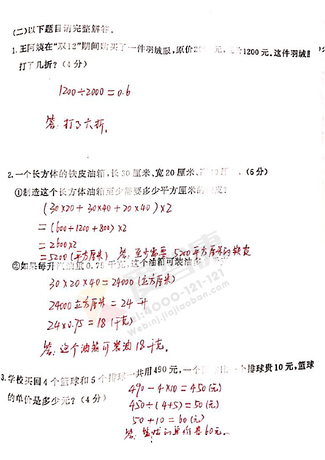 (二)以下题目请完整解答。
1.王阿姨在"双12"期间购买了一件羽绒服,原价2 1200元.这件羽绒服
打了几折? (4分)
1200÷2000=0.6
答:打了六折.
2.一个长方体的铁皮油箱,长30厘米、宽20厘米、 (6分)
①制造这个长方体油箱至少需要多少平方厘米的
(30×20+30×40+20×40)×2
=(600+1200+800)×2
=2600×2
=5200(平方厘米) 答:至少需要5200平方厘米的铁皮
②如果每升 0.75千 这个油箱可装油
30×20×40=24000(立方厘米)
24000立方厘米=24升
24×0.75=18(千克)
答:这个油箱可装油18千克.
3.学校买回4个篮球和5个排球一共用490元,一个 排球贵10元,篮球
的单价是多少元? (4分)
490-4×10=450(元)
450÷(4+5)=50(元)
50+10=60(元)
答:篮球的单价是60元.
400-121-121
webinjiaoyubao.cn